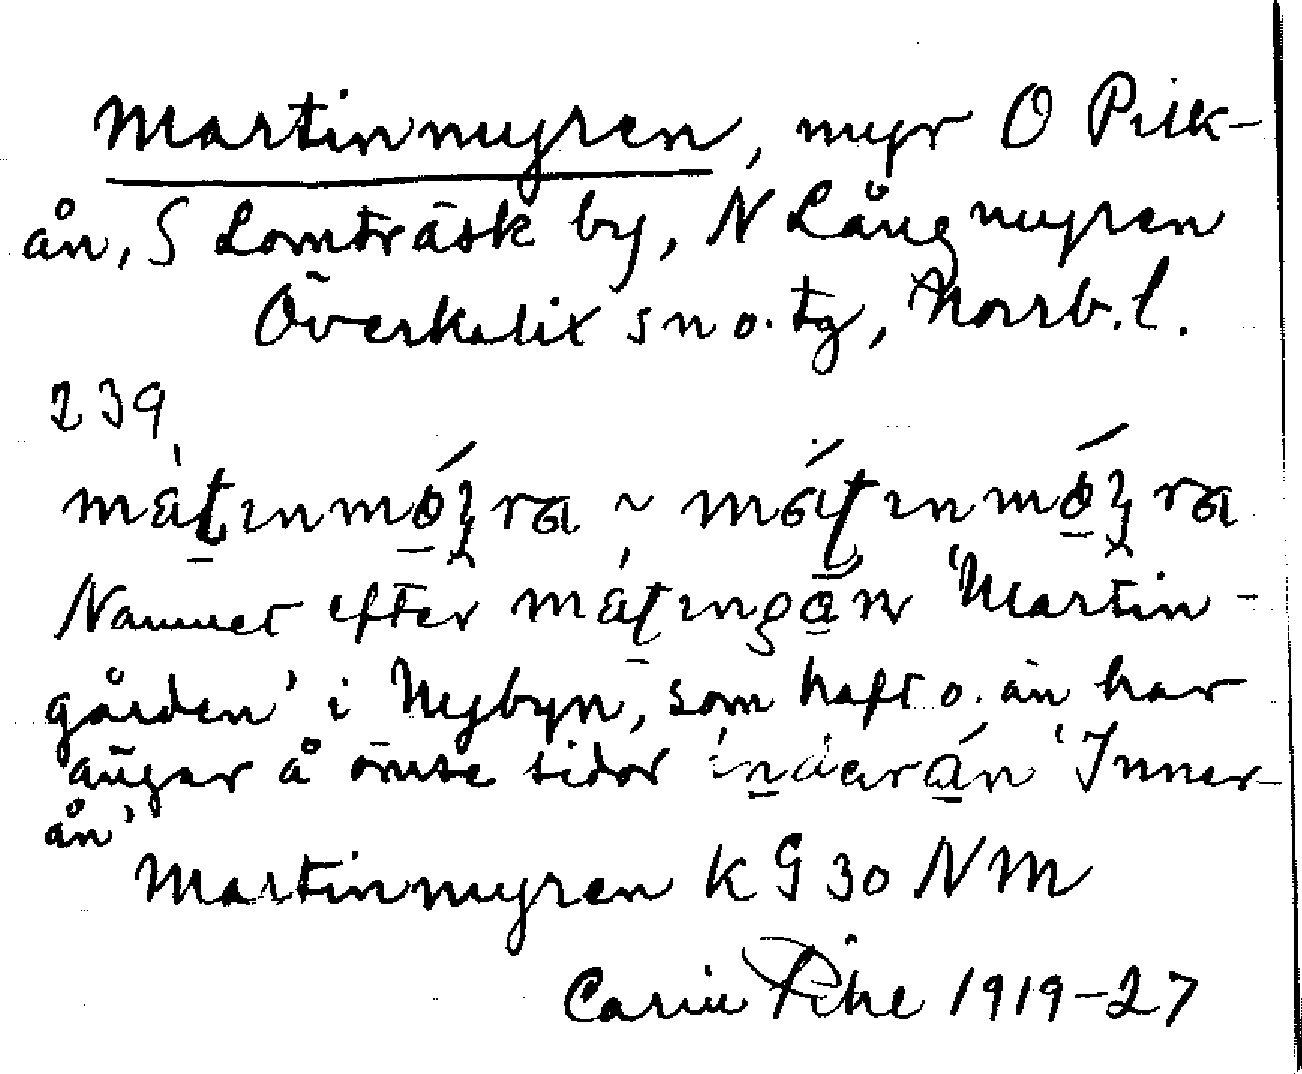 Martinmyren, myr O Pilk-
ån, S Lomträsk by, N Långmyren
Överkalix sn o. tg, Norrb. l.
239
Namnet efter 'Martin-
gården' i Nybyn, som haft o. än har
ängar å ömse sidor 'Inner-
ån'
Martinmyren k G 30 NM
Carin Pihl 1919-27